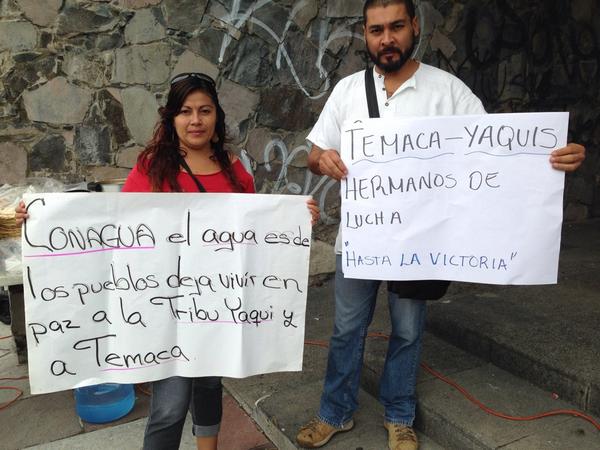 CONAGUA el agua es de
los pueblos deja vivir en
paz a la Tribu Yaqui y
a Temaca.
TEMACA-YAQUIS
HERMANOS DE
LUCHA
"HASTA LA VICTORIA"